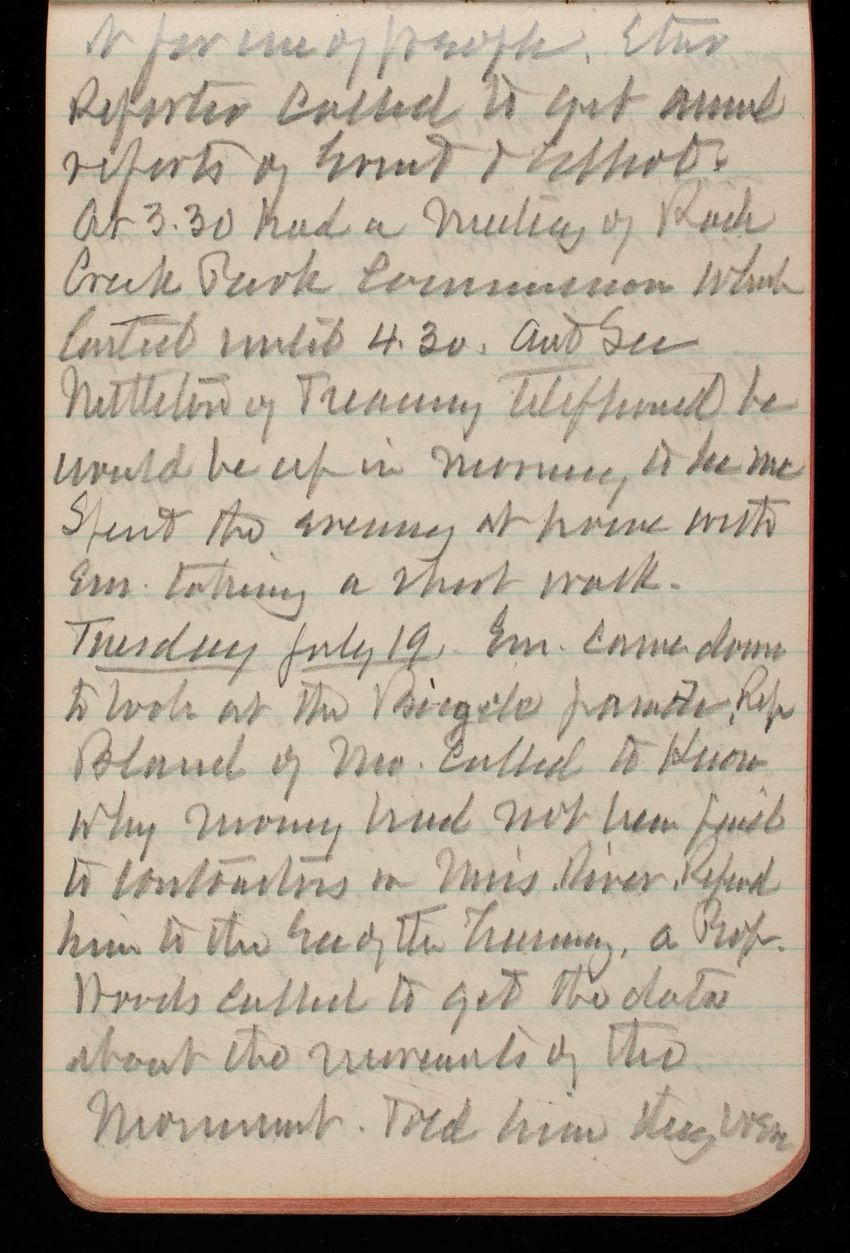 for use of people. Star
Reporter called to get annual
reports of Grant & Elliot.
At 3.30 had a Meeting of Rock
Creek Park Commission which
lasted until 4.30. Asst Sec
Nettleton of Treasury Telephoned he
would be up in morning to see me
Spent the evening at home with
Em. taking a short walk.
Tuesday July 19. Em. came down
to look at the Bicycle parade. Rep
Bland of Mo. Called to Know
why money had not been paid
to contractors on Miss. River. Refered
him to the Sec of the Treasury, a Prof.
Woods called to get the data
about the movements of the
Monument. Told him they